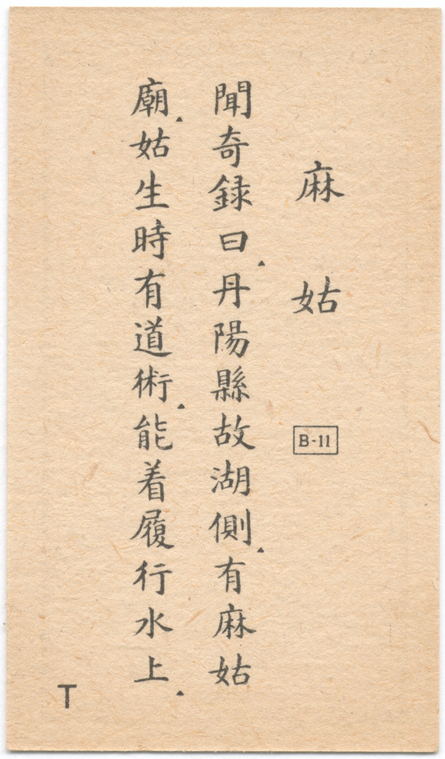 麻姑
B-11
聞奇録曰.丹陽縣故湖側.有麻姑
廟.姑生時有道術.能着履行水上.
T